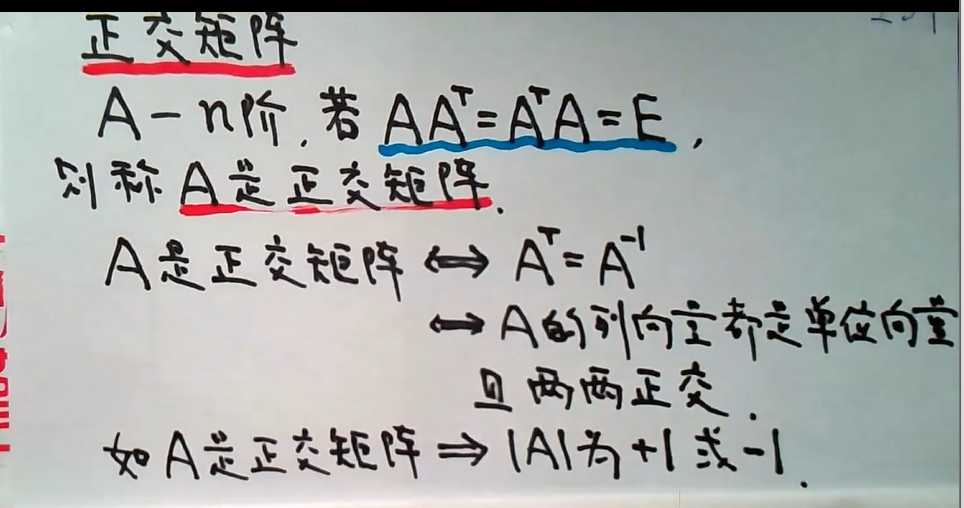 正交矩阵
A-n阶,若 AAᵀ=AᵀA=E,
则称A是正交矩阵.
A是正交矩阵 ⟺ Aᵀ=A⁻¹
⟺ A的列向量都是单位向量
且两两正交.
如A是正交矩阵 ⟹ |A|为+1或-1.